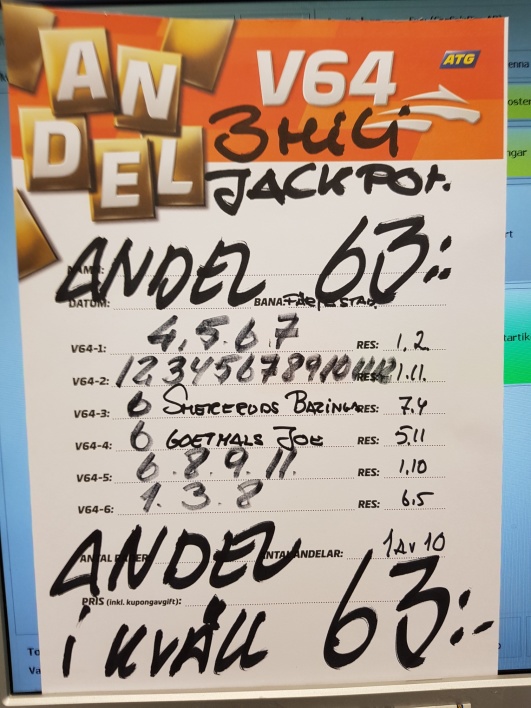 ANDEL
V64
ATG
3 MILJ
JACKPOT.
ANDEL 63:-
DATUM: BANA: FÄRJESTAD.
V64-1: 4.5.6.7 RES: 1.2
V64-2: 1 2 3 4 5 6 7 8 9 10 11 12 RES: 1.11
V64-3: 6 RES: 7.4
V64-4: 6 GOETHALS JOE RES: 5.11
V64-5: 6.8.9.11. RES: 1.10
V64-6: 1.3.8 RES: 6.5
ANTAL ANDELAR: 1 AV 10
ANDEL
PRIS (inkl. kupongavgift):
I KVÄLL 63:-